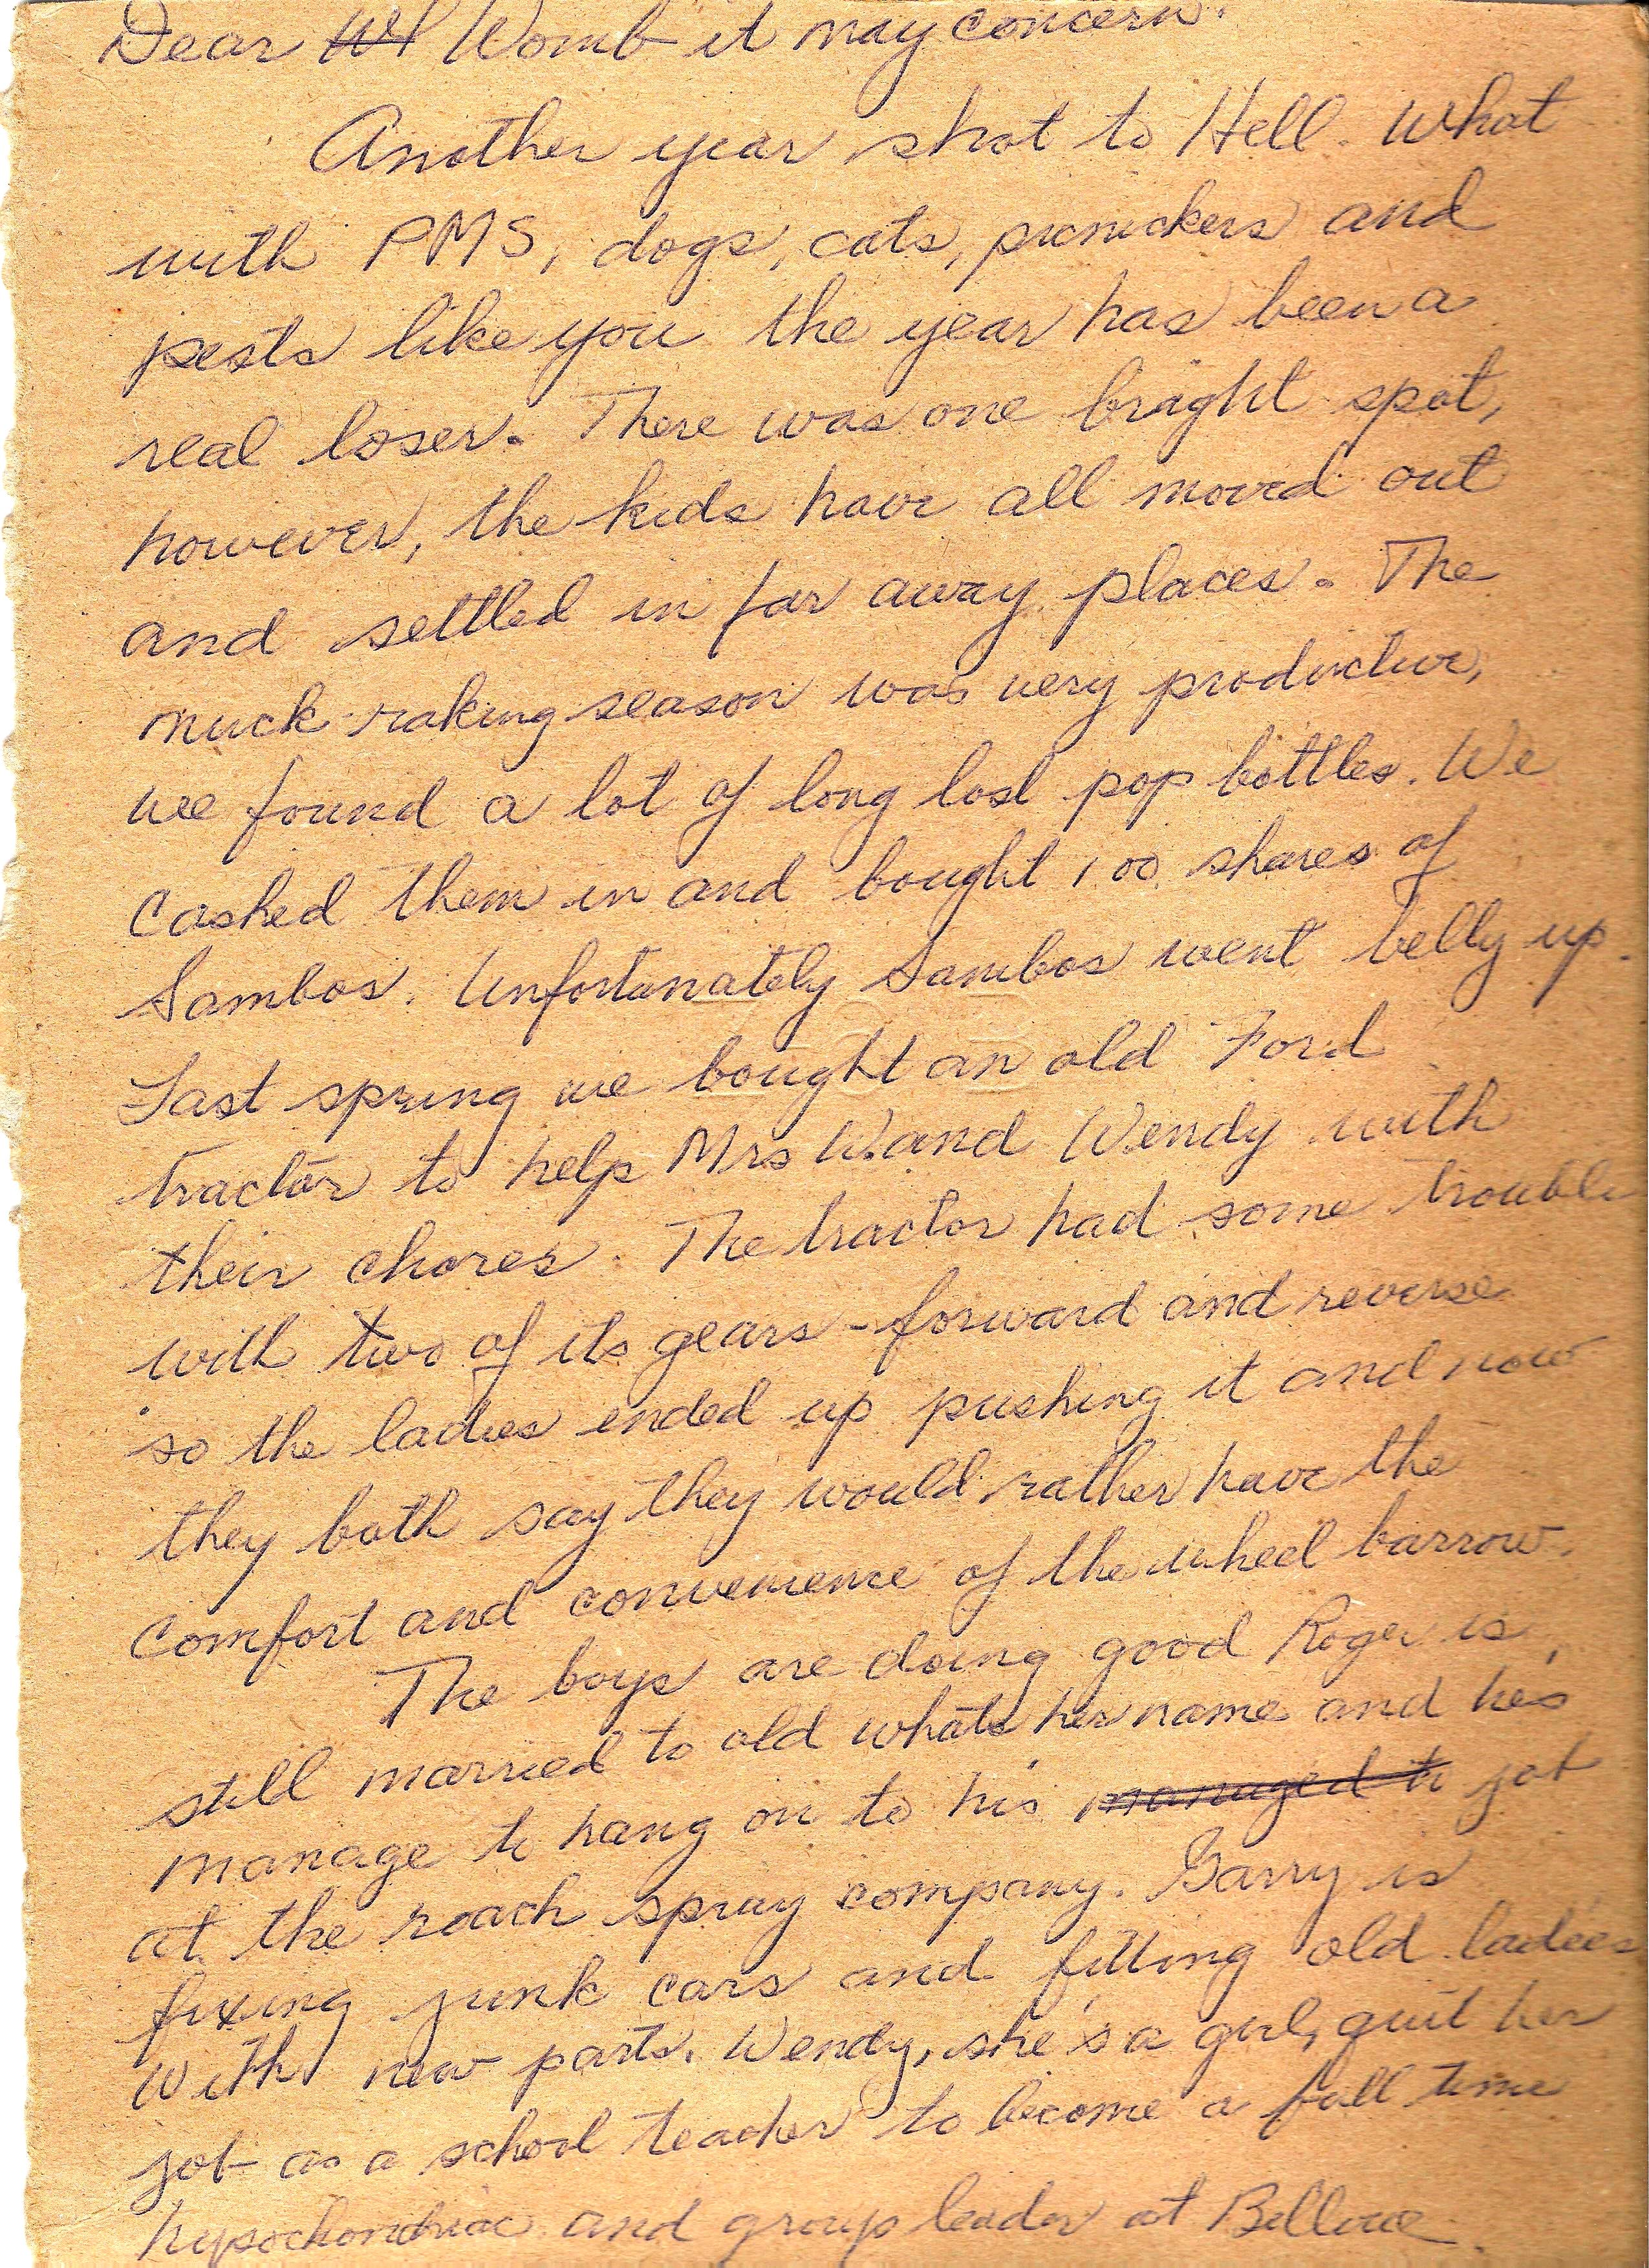 Dear Wh Womb it may concern.
Another year shot to Hell. What
with PMS, dogs, cats, picnickers and
pests like you the year has been a
real loser. There was one bright spot,
however, the kids have all moved out
and settled in far away places. The
muck-raking season was very productive,
we found a lot of long lost pop bottles. We
cashed them in and bought 100 shares of
Sambos. Unfortunately Sambos went belly up.
Last spring we bought an old Ford
tractor to help Mrs W. and Wendy with
their chores. The tractor had some trouble
with two of its gears - forward and reverse
so the ladies ended up pushing it and now
they both say they would rather have the
comfort and convenience of the wheel barrow.
The boys are doing good Roger is
still married to old whats her name and he's
manage to hang on to his managed to job
at the roach spray company. Garry is
fixing junk cars and fitting old ladies
with new parts. Wendy, she's a girl, quit her
job as a school teacher to become a full time
hypochondriac and group leader at Bellvue.